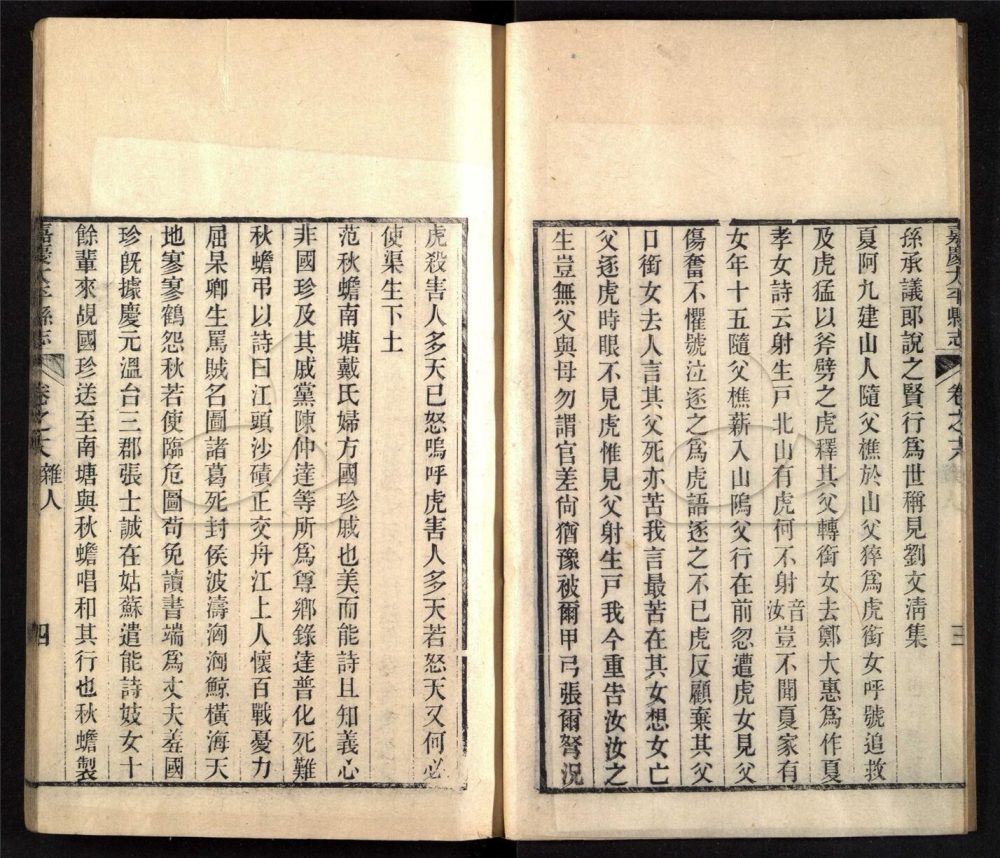 嘉慶太平縣志 卷之十八 三
孫承議郎說之賢行爲世稱見劉文淸集
夏阿九建山人隨父樵於山父猝爲虎銜女呼號追救
及虎猛以斧劈之虎釋其父轉銜女去鄭大惠爲作夏
孝女詩云射生戸北山有虎何不射音汝豈不聞夏家有
女年十五隨父樵薪入山塢父行在前忽遭虎女見父
傷奮不懼號泣逐之爲虎語逐之不已虎反顧棄其父
口銜女去人言其父死亦苦我言最苦在其女想女亡
父逐虎時眼不見虎惟見父射生戸我今重告汝汝之
生豈無父與母勿謂官差尙猶豫被爾甲弓張爾弩況
虎殺害人多天已怒嗚呼虎害人多天若怒天又何必
使渠生下土
范秋蟾南塘戴氏婦方國珍戚也美而能詩且知義心
非國珍及其戚黨陳仲達等所爲尊鄕錄達普化死難
秋蟾弔以詩曰江頭沙磧正交舟江上人懷百戰憂力
屈杲卿生罵賊名圖諸葛死封侯波濤洶洶鯨橫海天
地寥寥鶴怨秋若使臨危圖苟免讀書端爲丈夫羞國
珍旣據慶元溫台三郡張士誠在姑蘇遣能詩妓女十
餘輩來覘國珍送至南塘與秋蟾唱和其行也秋蟾製
嘉慶太平縣志 卷之十八 雜人 四